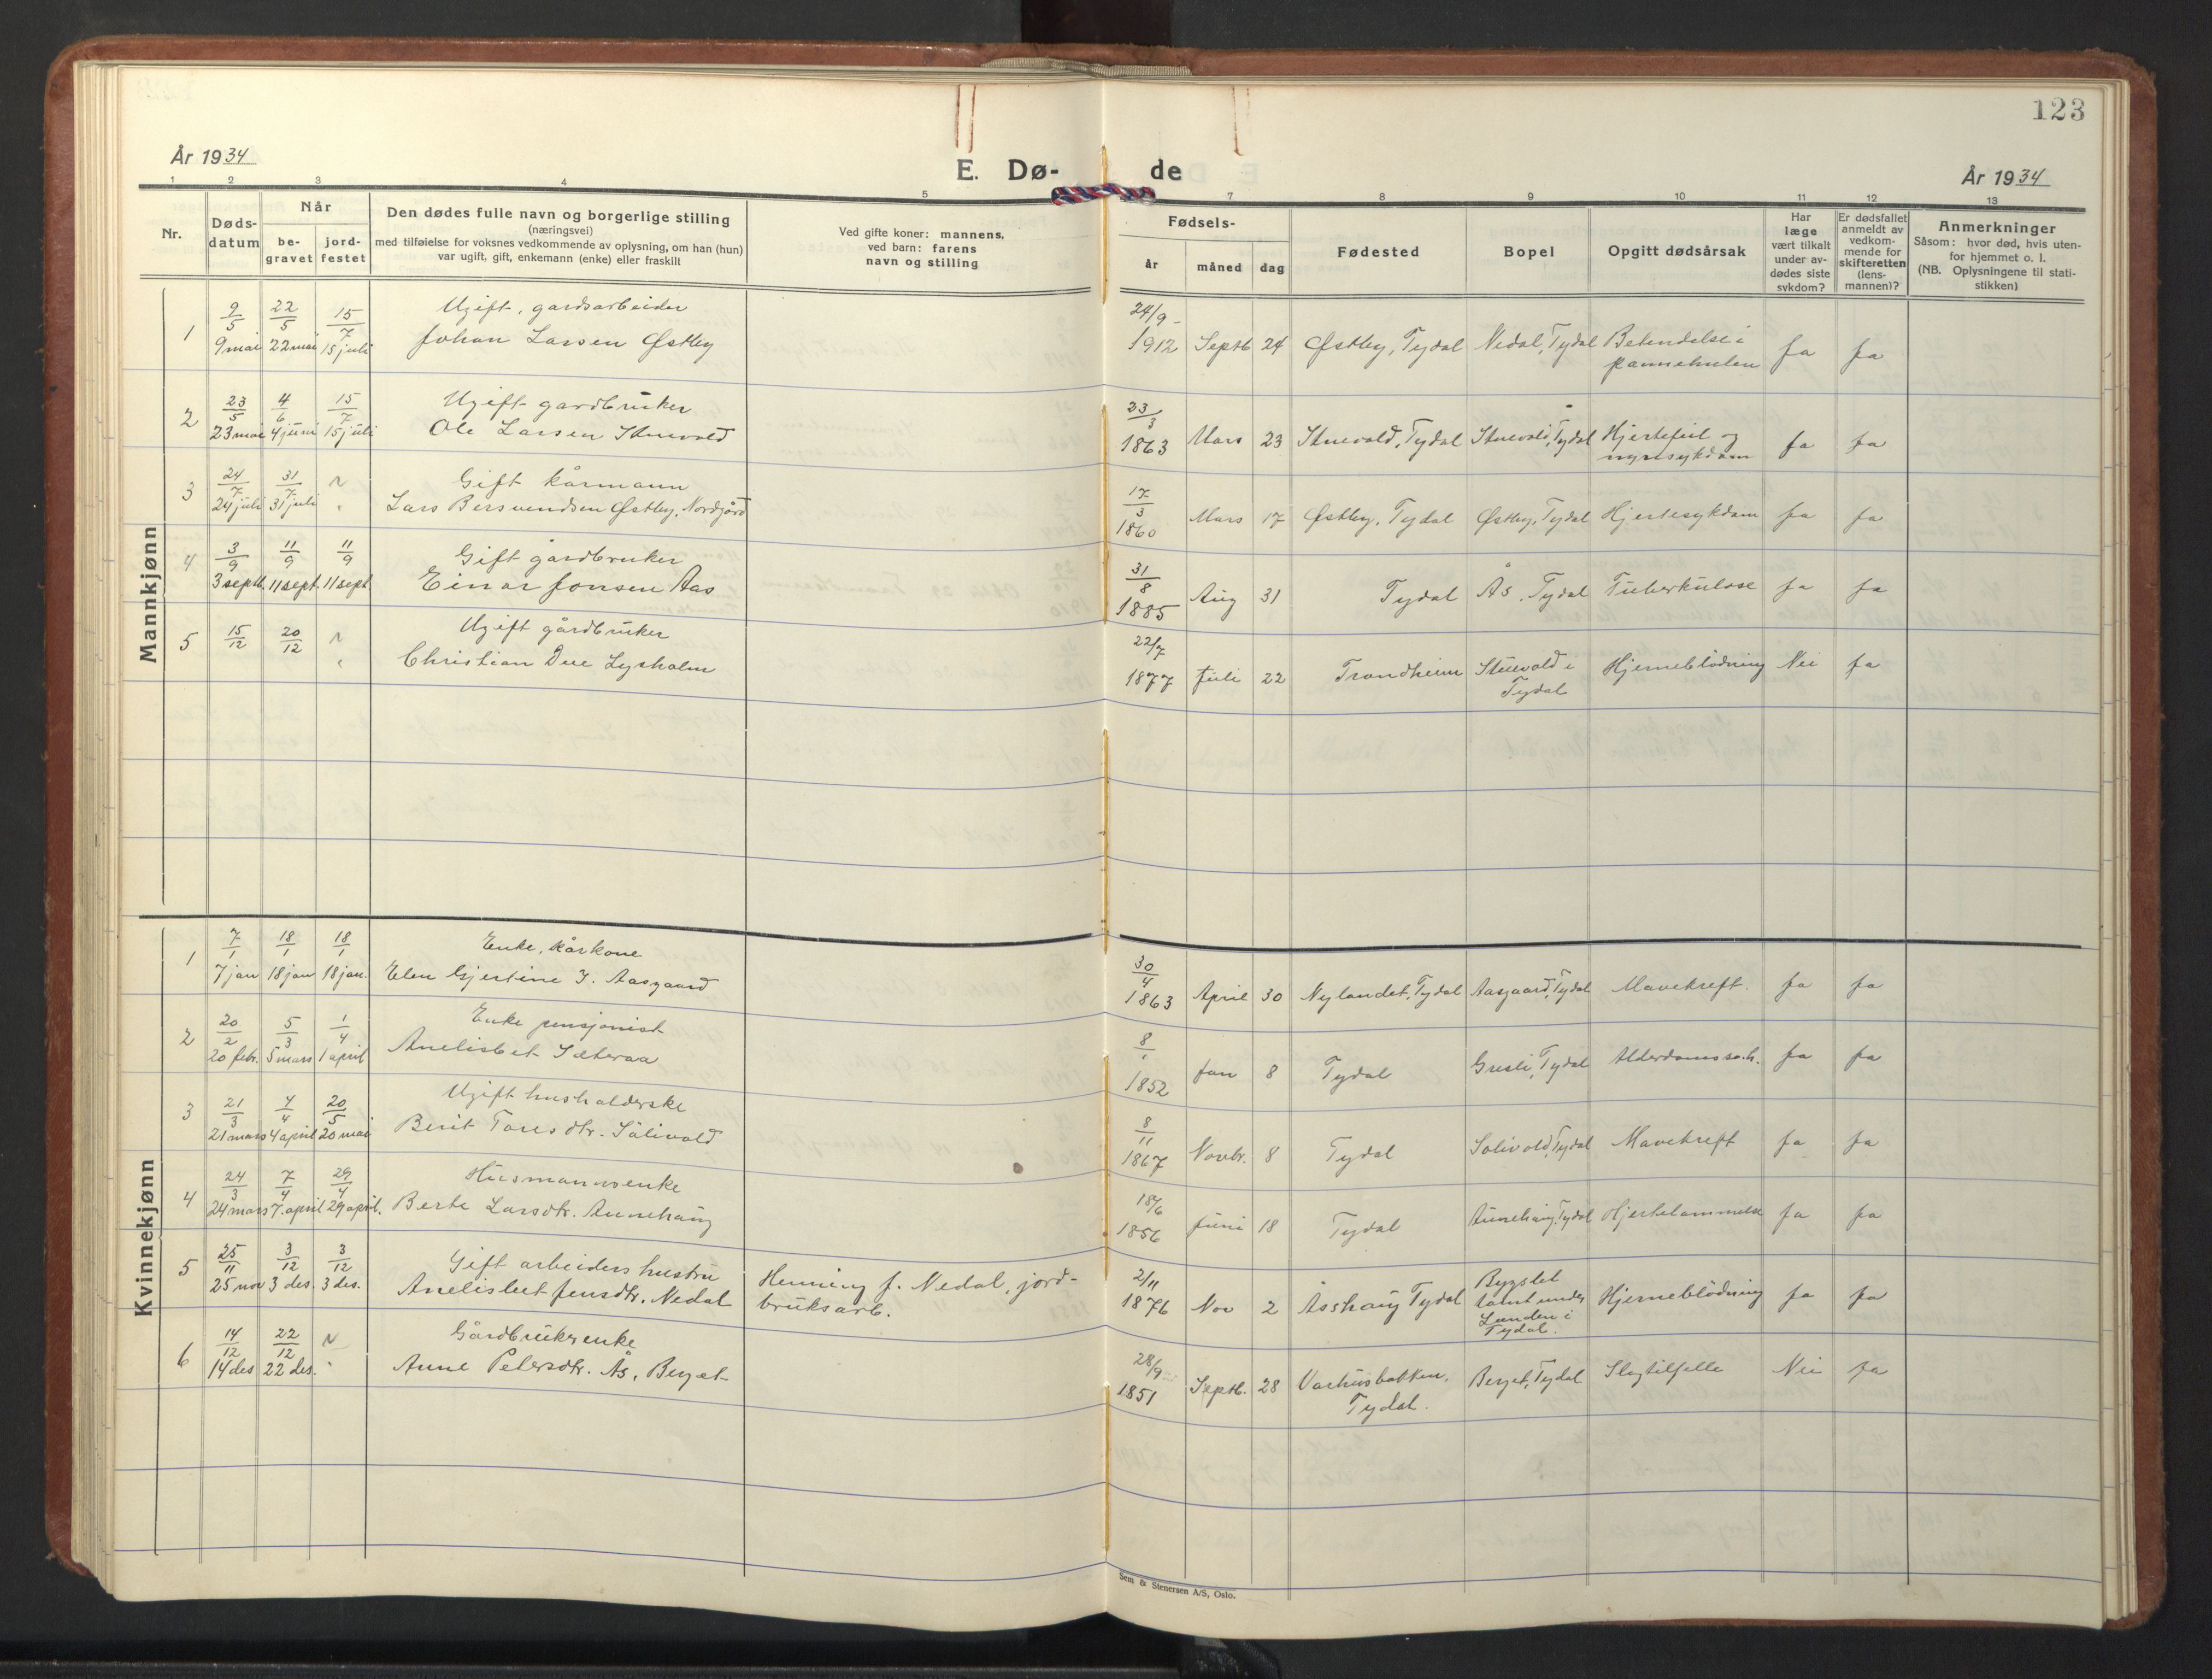 123
År 1934
E. Dø-
de
År 1934
1 2 3 4 5 7 8 9 10 11 12 13
Nr.
Døds-
datum
Når
be-
gravet
jord-
festet
Den dødes fulle navn og borgerlige stilling
(næringsvei)
med tilføielse for voksnes vedkommende av oplysning, om han (hun)
var ugift, gift, enkemann (enke) eller fraskilt
Ved gifte koner: mannens,
ved barn: farens
navn og stilling
Fødsels-
år måned dag
Fødested
Bopel
Opgitt dødsårsak
Har
læge
vært tilkalt
under av-
dødes siste
sykdom?
Er dødsfallet
anmeldt av
vedkom-
mende for
skifteretten
(lens-
mannen)?
Anmerkninger
Såsom: hvor død, hvis uten-
for hjemmet o. l.
(NB. Oplysningene til stati-
stikken)
Mannkjønn
1 9/5 22/5 15/7 Ugift, gardsarbeider 24/9
9 mai 22 mai 15 juli Johan Larsen Østby 1912 Septb 24 Østby, Tydal Nedal, Tydal Betendelse i
pannehulen Ja Ja
2 23/5 4/6 15/7 Ugift gardbruker 23/3
23 mai 4 juni 15 juli Ole Larsen Stuevold 1863 Mars 23 Stuevold, Tydal Stuevold, Tydal Hjertefeil og
nyresykdom Ja Ja
3 24/7 31/7 Gift kårmann 17/3
24 juli 31 juli " Lars Bersvendsen Østby, Nordgård 1860 Mars 17 Østby, Tydal Østby, Tydal Hjertesykdom Ja Ja
4 3/9 11/9 11/9 Gift gårdbruker 31/8
3 septb. 11 sept. 11 sept Einar Jonsen Aas 1885 Aug 31 Tydal Ås, Tydal Tuberkulose Ja Ja
5 15/12 20/12 Ugift gårdbruker 22/7
" Christian Due Lysholm 1877 Juli 22 Trondheim Stuevold i
Tydal Hjerneblödning Nei Ja
Kvinnekjønn
1 7/1 18/1 18/1 Enke, kårkone 30/4
7 jan 18 jan 18 jan. Elen Gjertine J. Aasgaard 1863 April 30 Nylandet, Tydal Aasgaard, Tydal Mavekreft. Ja Ja
2 20/2 5/3 1/4 Enke pensjonist 8/1
20 febr. 5 mars 1 april Anelisbet Sæteraa 1852 Jan 8 Tydal Gresli, Tydal Alderdomssvh. Ja Ja
3 21/3 4/4 20/5 Ugift husholderske 8/11
21 mars 4 april 20 mai Berit Toresdtr. Sölivold 1867 Novbr. 8 Tydal Solivold, Tydal Mavekreft Ja Ja
4 24/3 7/4 29/4 Husmannsenke 18/6
24 mars 7. april 29 april. Berte Larsdtr. Aunehaug 1856 Juni 18 Tydal Aunehaug, Tydal Hjertelammelse Ja Ja
5 25/11 3/12 3/12 Gift arbeiders hustru 2/11
25 nov 3 des. 3 des. Anelisbet Jensdtr. Nedal Henning J. Nedal, jord-
bruksarb. 1876 Nov 2 Åsshaug Tydal Bygslet
tomt under
Lunden i
Tydal. Hjerneblödning Ja Ja
6 14/12 22/12 Gårdbrukerenke 28/9
14 des 22 des. " Anne Petersdtr. Ås, Berget 1851 Septb. 28 Varhusbakken,
Tydal. Berget, Tydal Slagtilfelle Nei Ja
Sem & Stenersen A/S, Oslo.